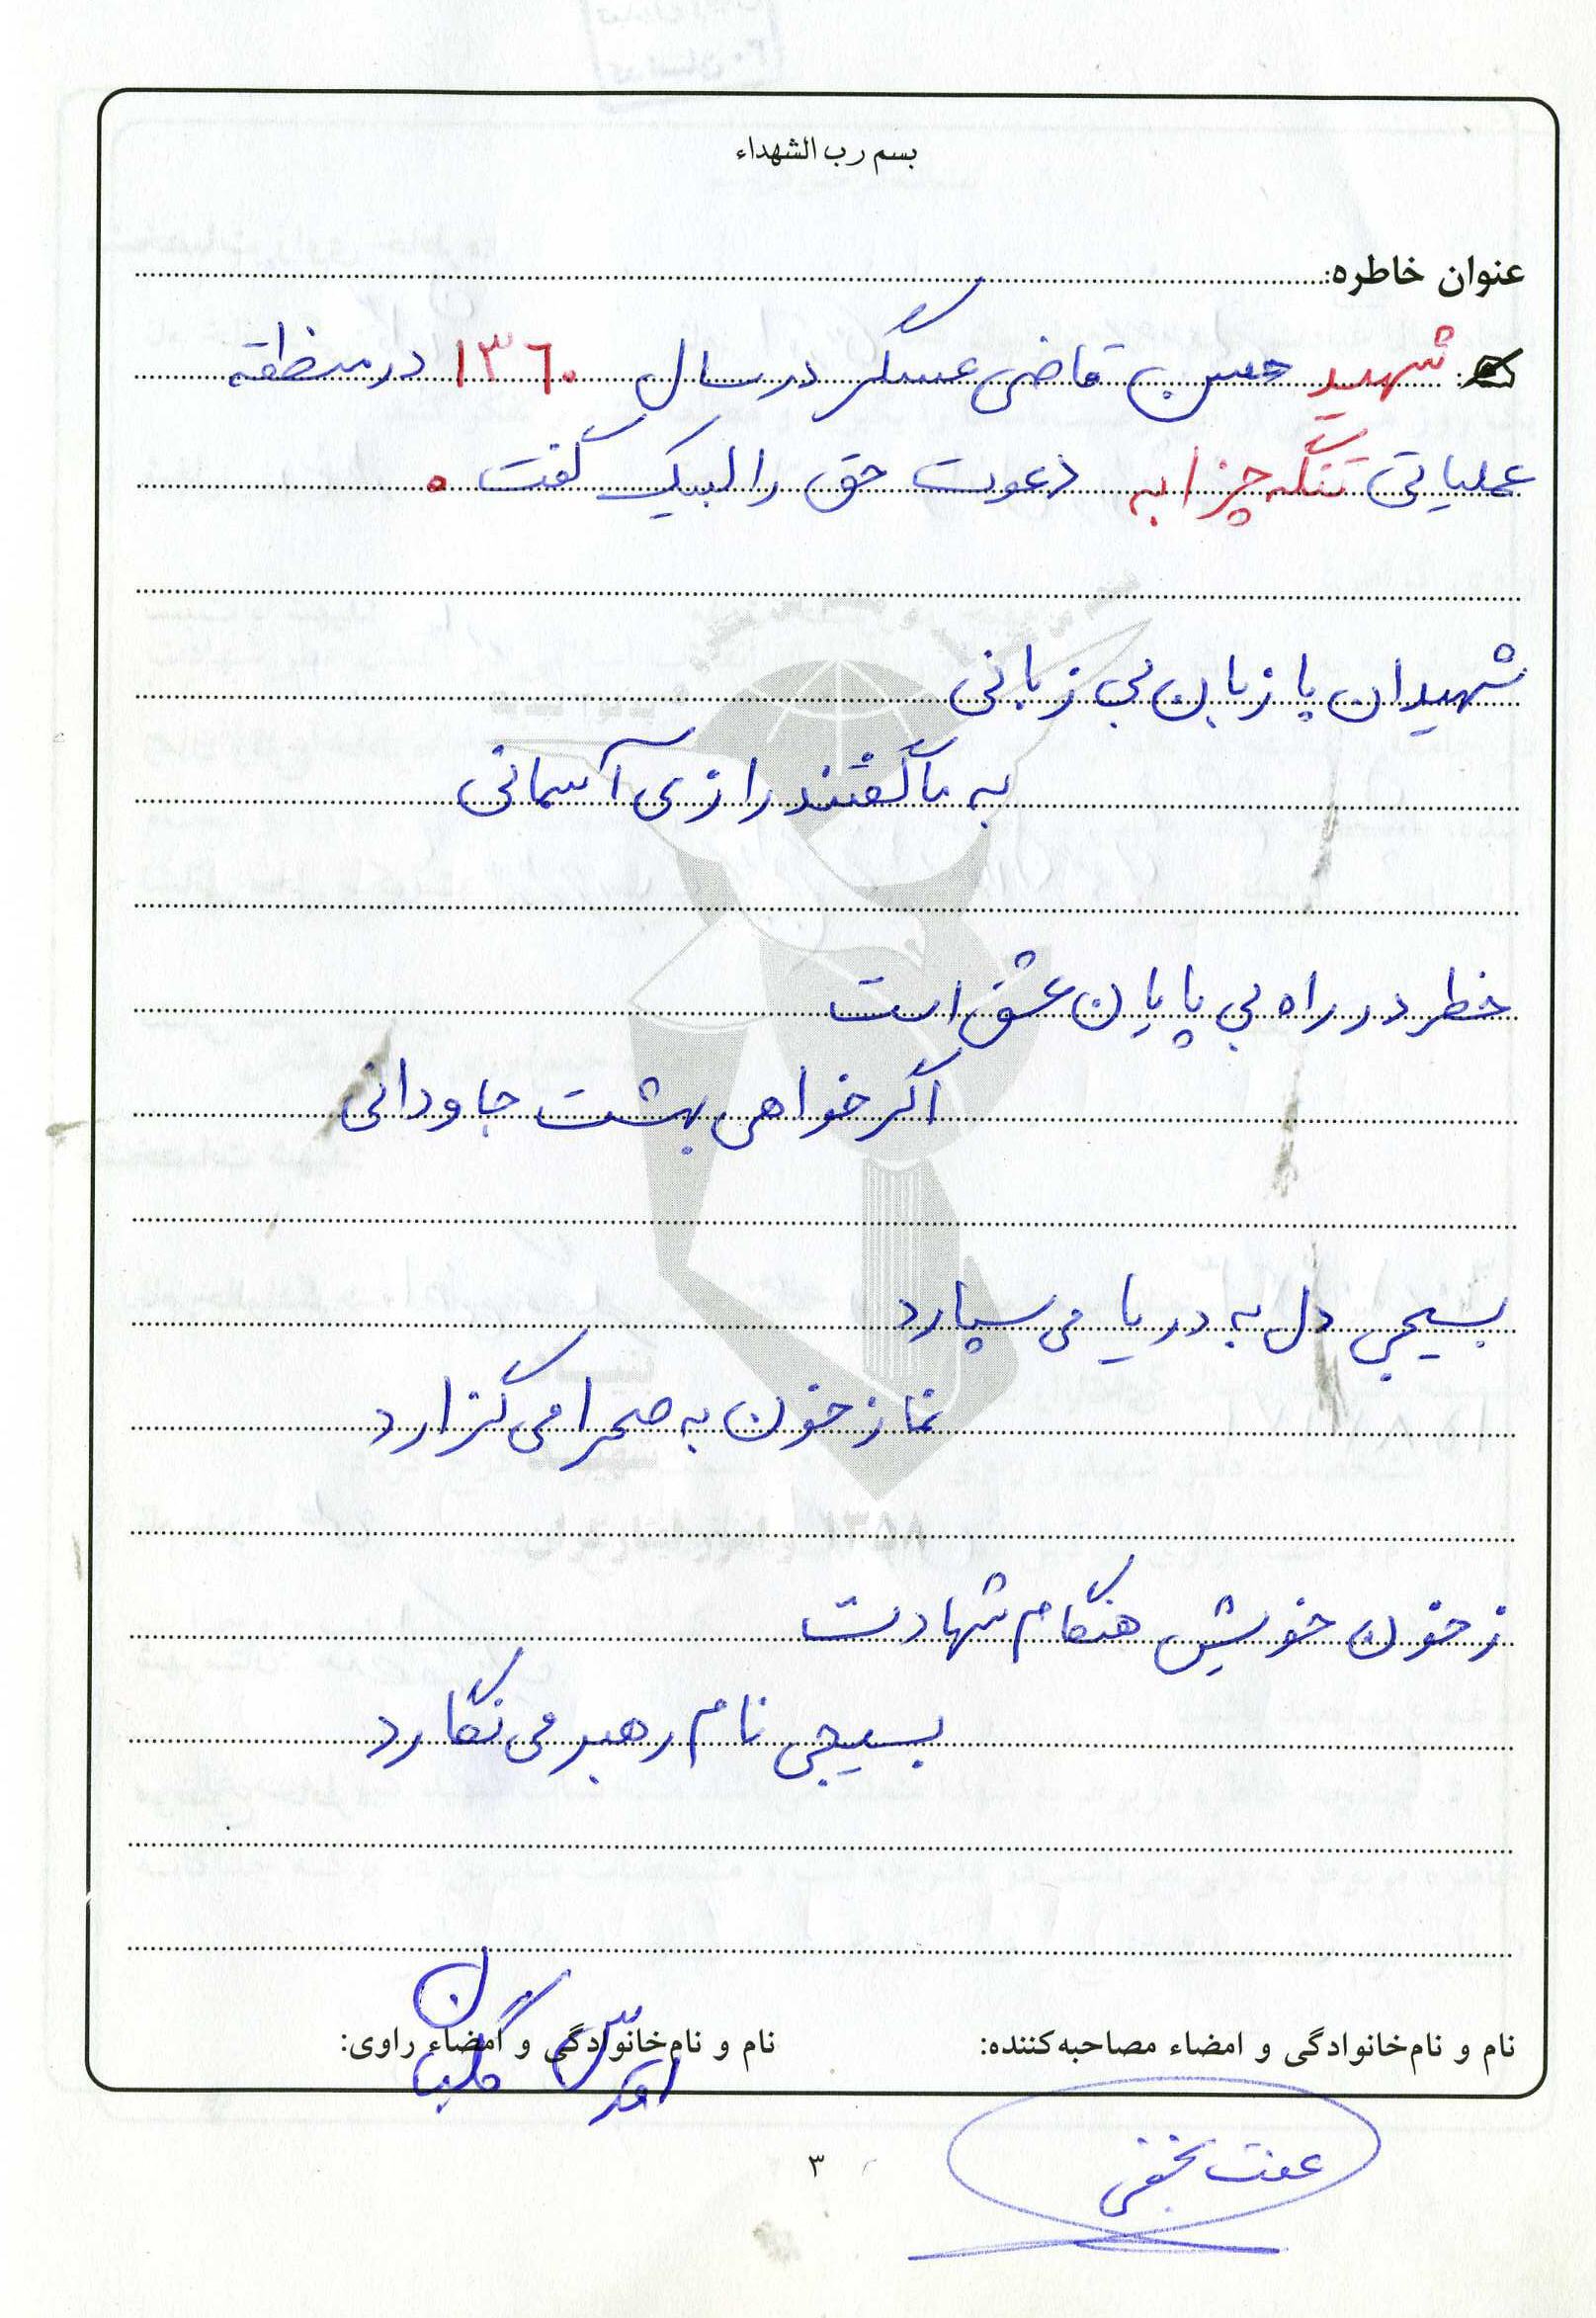 بسم رب الشهداء
عنوان خاطره:
شهید حسن قاضی عسگر در سال ۱۳۶۰ در منطقه
عملیاتی تنگه چزابه دعوت حق را لبیک گفت.
شهیدان با زبان بی زبانی
به ما گفتند رازی آسمانی
خطر در راه بی پایان عشق است
اگر خواهی بهشت جاودانی
بسیجی دل به دریا می سپارد
نماز خون به صحرا می گزارد
ز خون خویش هنگام شهادت
بسیجی نام رهبر می نگارد
نام و نام‌خانوادگی و امضاء مصاحبه‌کننده:
نام و نام‌خانوادگی و امضاء راوی:
اقدس
عفت نجفی
۳